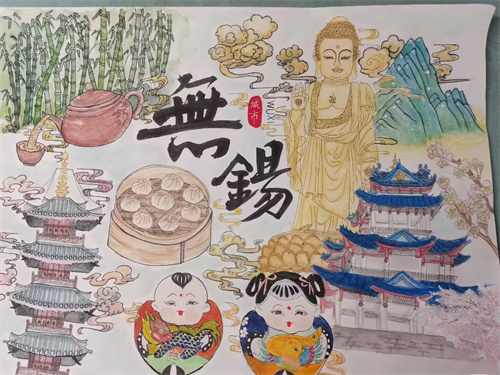 無錫
城市
WUXI